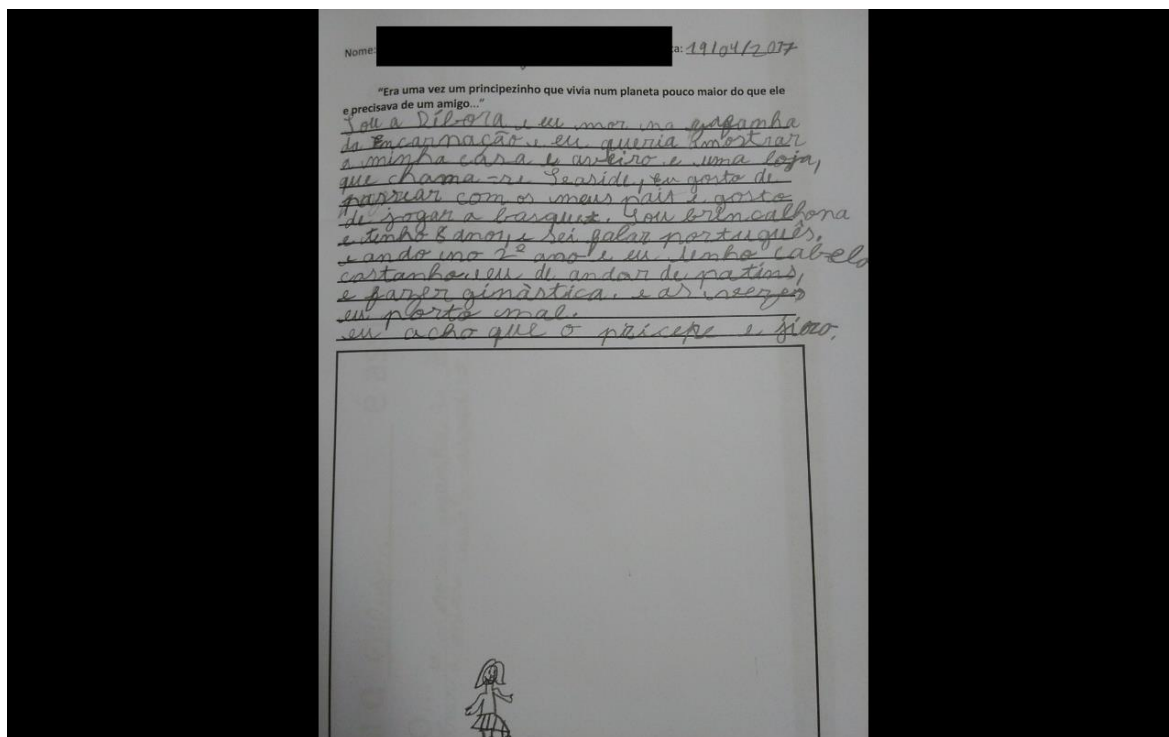 Nome: a: 19/04/2017
"Era uma vez um principezinho que vivia num planeta pouco maior do que ele
e precisava de um amigo..."
Sou a Débora, e eu mor na gafanha
da Encarnação, e eu queria mostrar
a minha casa e aveiro e uma loja,
que chama-se Seaside, eu gosto de
passear com os meus pais e gosto
de jogar a basquet. Sou brincalhona
e tenho 8 anos, e sei falar português,
e ando no 2º ano e eu tenho cabelo
castanho, eu de andar de patins,
e fazer ginàstica. e as vezes
eu porto mal.
eu acho que o prícepe e jiro.